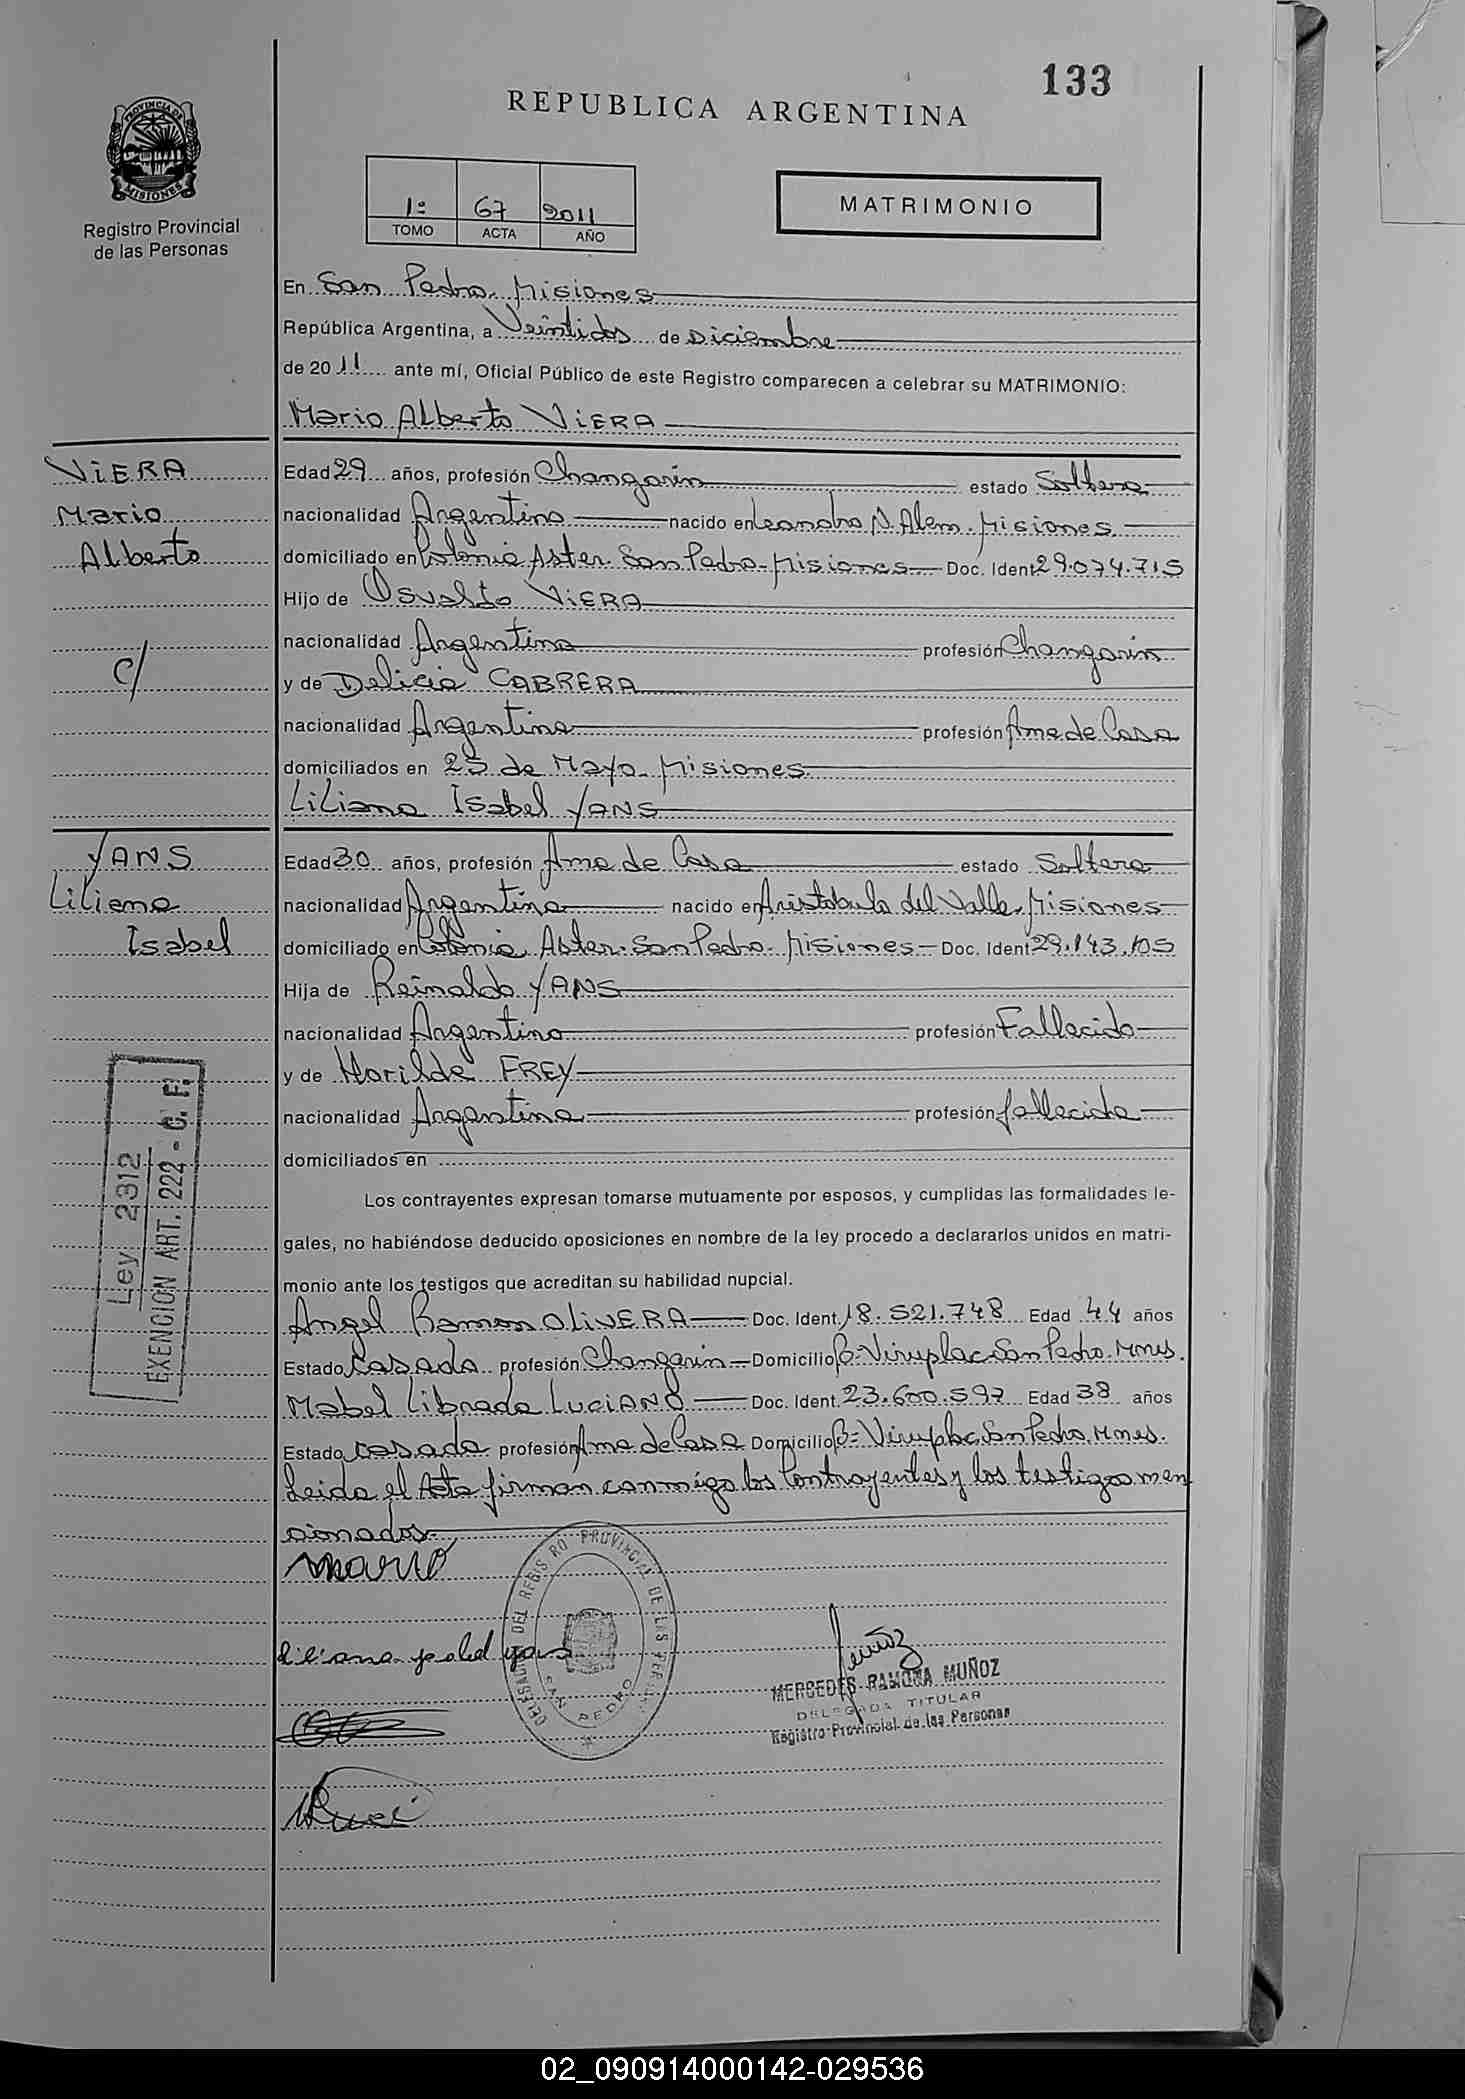 133
REPUBLICA ARGENTINA
PROVINCIA DE
MISIONES
Registro Provincial
de las Personas
1º 67 2011
TOMO ACTA AÑO
MATRIMONIO
En San Pedro. Misiones
República Argentina, a Veintidos de Diciembre
de 2011 ante mí, Oficial Público de este Registro comparecen a celebrar su MATRIMONIO:
Mario Alberto ViERA
ViERA
Mario
Alberto
c/
Edad 29 años, profesión Changarin estado Soltero
nacionalidad Argentino nacido en Leandro N. Alem. Misiones
domiciliado en Colonia Aster. San Pedro. Misiones Doc. Ident 29.074.715
Hijo de Osvaldo ViERA
nacionalidad Argentino profesión Changarin
y de Delicia CABRERA
nacionalidad Argentina profesión Ama de Casa
domiciliados en 25 de Mayo. Misiones
Liliana Isabel YANS
YANS
Liliana
Isabel
Edad 30 años, profesión Ama de Casa estado Soltera
nacionalidad Argentina nacido en Aristobulo del Valle. Misiones
domiciliado en Colonia Aster. San Pedro. Misiones Doc. Ident 29.143.105
Hija de Reinaldo YANS
nacionalidad Argentino profesión Fallecido
y de Marilde FREY
nacionalidad Argentina profesión fallecida
domiciliados en
Ley 2312
EXENCION ART. 222 - C. F.
Los contrayentes expresan tomarse mutuamente por esposos, y cumplidas las formalidades le-
gales, no habiéndose deducido oposiciones en nombre de la ley procedo a declararlos unidos en matri-
monio ante los testigos que acreditan su habilidad nupcial.
Angel Ramon OLiVERA Doc. Ident. 18.521.748 Edad 44 años
Estado Casado profesión Changarin Domicilio Bº Viruplac San Pedro. Mnes.
Mabel Librada LUCiANO Doc. Ident. 23.600.597 Edad 38 años
Estado casada profesión Ama de Casa Domicilio Bº Viruplac San Pedro. Mnes.
Leida el Acta firman conmigo los Contrayentes y los testigos men
cionados.
mario
DELEGACION DEL REGISTRO PROVINCIAL DE LAS PERSONAS
SAN PEDRO
Muñoz
MERCEDES RAMONA MUÑOZ
DELEGADA TITULAR
Registro Provincial de las Personas
02_090914000142-029536